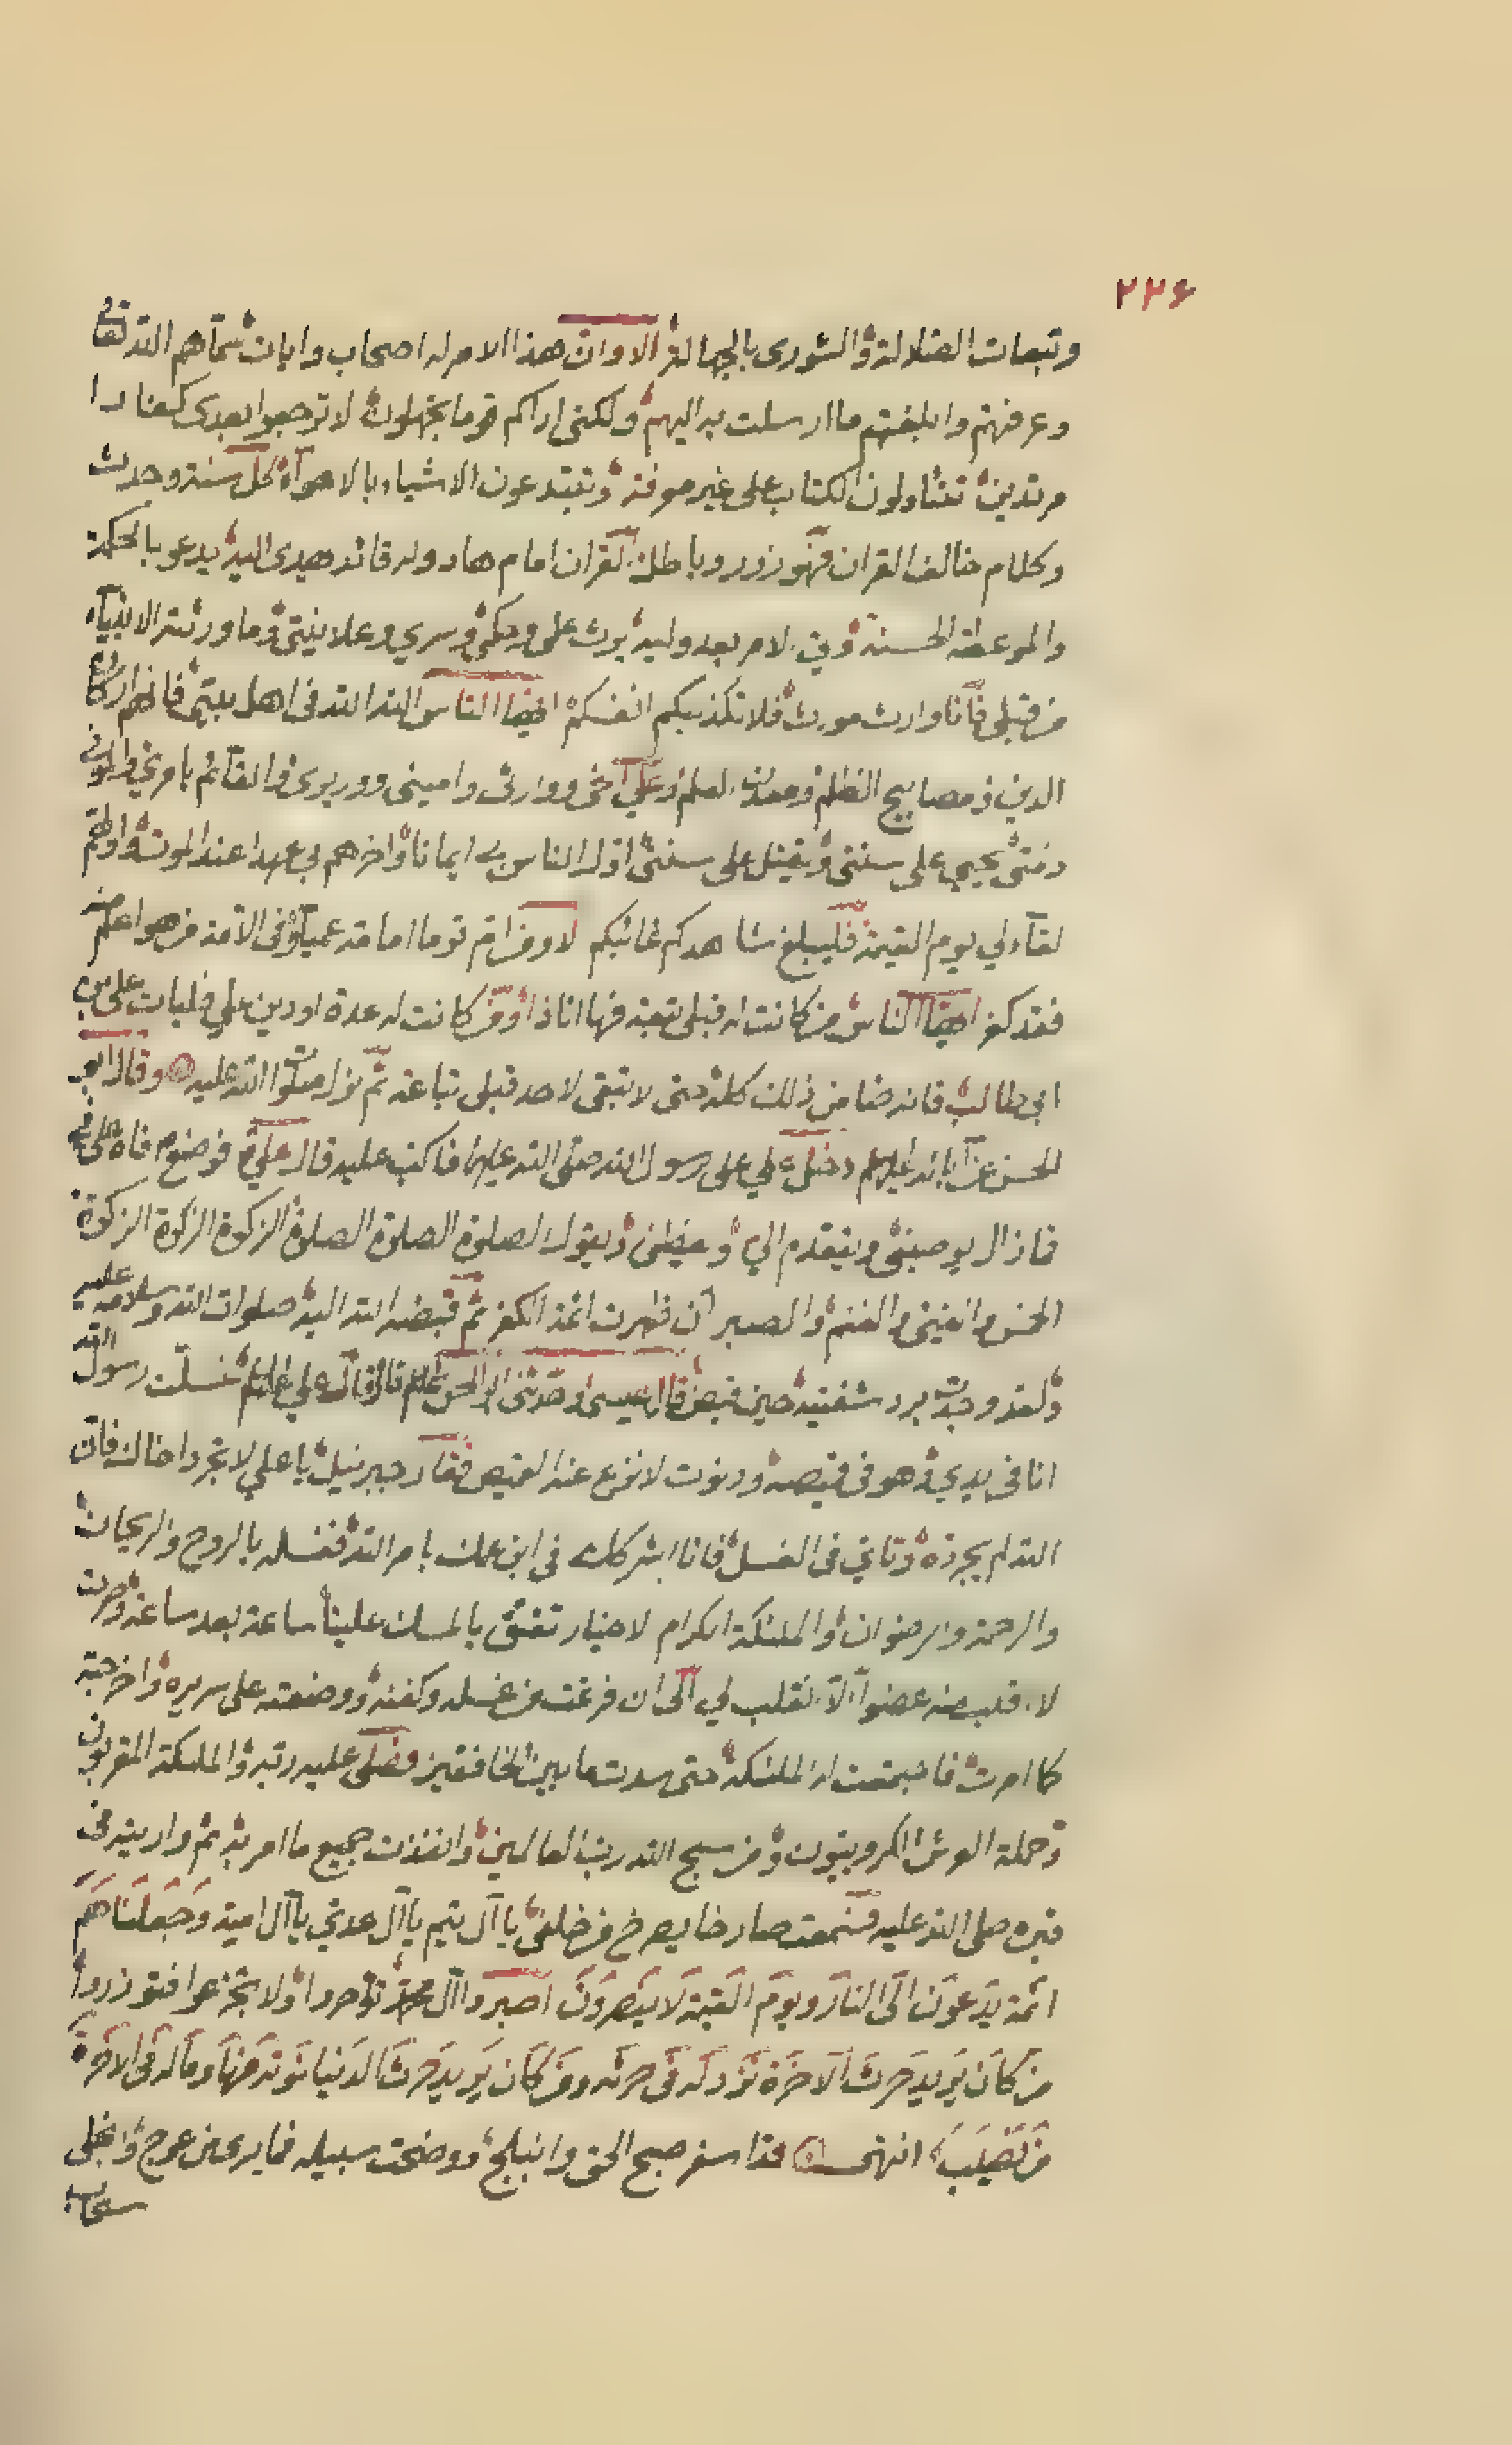 ٢٢۶
وتبعات الضلالة والشورى بالجهالة الا وان هذا الامر له اصحاب وايات سماهم الله تعالى
وعرفتهم وابلغتكم ما ارسلت به اليهم ولكني اراكم قوما تجهلون لا ترجعوا بعدي كفارا
مرتدين تتناولون الكتاب على غير معرفة وتبتدعون الاشياء بالاهواء كل سنة وحدث
وكلام خالف القران فهو زور وباطل القران امام هاد وله قائد يهدي اليه يدعو بالحكمة
والموعظة الحسنة ولي الامر بعد وليه يورث علمي وحكمي وسري وعلانيتي وما ورثه الانبياء
من قبلي فانا وارث مورث فلا تكذبنكم انفسكم ايها الناس الله الله في اهل بيتي فانهم اركان
الدين ومصابيح الظلم ومعدن العلم وعلي اخي ووارثي واميني ووزيري والقائم بامري والموفي
ذمتي يحيى على سنتي ويقتل على سنتي اول الناس بي ايمانا واخرهم بي عهدا عند الموت واولهم
لقاء لي يوم القيمة فليبلغ شاهدكم غائبكم الا ومن ام قوما امامة عمياء وفي الامة من هو اعلم منه
فقد كفر ايها الناس من كانت له قبلي تبعة فها انا ذا ومن كانت له عدة او دين علي فليات علي بن
ابي طالب فانه ضامن ذلك كله حتى لا تبقى لاحد قبلي تباعة ثم نزل صلوات الله عليه وقال ابو
الحسن عن ابائه عليهم دخل علي على رسول الله صلى الله عليهما فاكب عليه قال علي فوضع فاه على اذني
فما زال يوصيني ويتقدم الي ويعظني ويقول الصلوة الصلوة الصلوة الزكوة الزكوة الزكوة
الخمس والفيء والغنم والصبر ان ظهرت ائمة الكفر ثم قبضه الله اليه صلوات الله وسلامه عليه
ولقد وجدت برد شفتيه حين قبض قال عيسى وحدثني ابو الحسن عليه السلام قال قال علي عليه السلام غسلت رسول الله
انا في يدي وهو في قميصه وذهبت لانزع عنه القميص فقال جبرئيل يا علي لا تجرد اخاك فان
الله لم يجرده وتاني في الغسل فانا اشركك في ابن عمك بامر الله فغسله بالروح والريحان
والرحمة والرضوان والملئكة الكرام الاخيار تفتق بالمسك علينا ساعة بعد ساعة وصرت
لا اقلب منه عضوا الا انقلب لي الى ان فرغت من غسله وكفنه ووضعته على سريره واخرجته
كما امرت فاجتمعت له الملئكة حتى سدت ما بين الخافقين فصلى عليه ربه والملئكة المقربون
وحملة العرش الكروبيون ومن سبح الله رب العالمين وانفذت جميع ما امر به ثم واريته في
قبره صلى الله عليه فسمعت صارخا يصرخ من خلفي يا آل تيم يا آل عدي يا آل امية وَجَعَلنَاهُم
ائمة يَدعُونَ الَى النار ويومَ القيمة لَا يُنصَرُونَ اصبروا آل محمد تؤجروا ولا تجزعوا فتؤزروا
مَن كَانَ يُرِيدُ حَرثَ الآخرةِ نَزد لَهُ في حَرثه ومَن كَانَ يُرِيدُ حَرثَ الدنيا نُؤته مِنهَا ومَا لَهُ في الآخرة
من نَصِيب انتهى هذا اسفر صبح الحق وانبلج ووضحت سبيله فما يرى من عوج وانجلى
سحاب